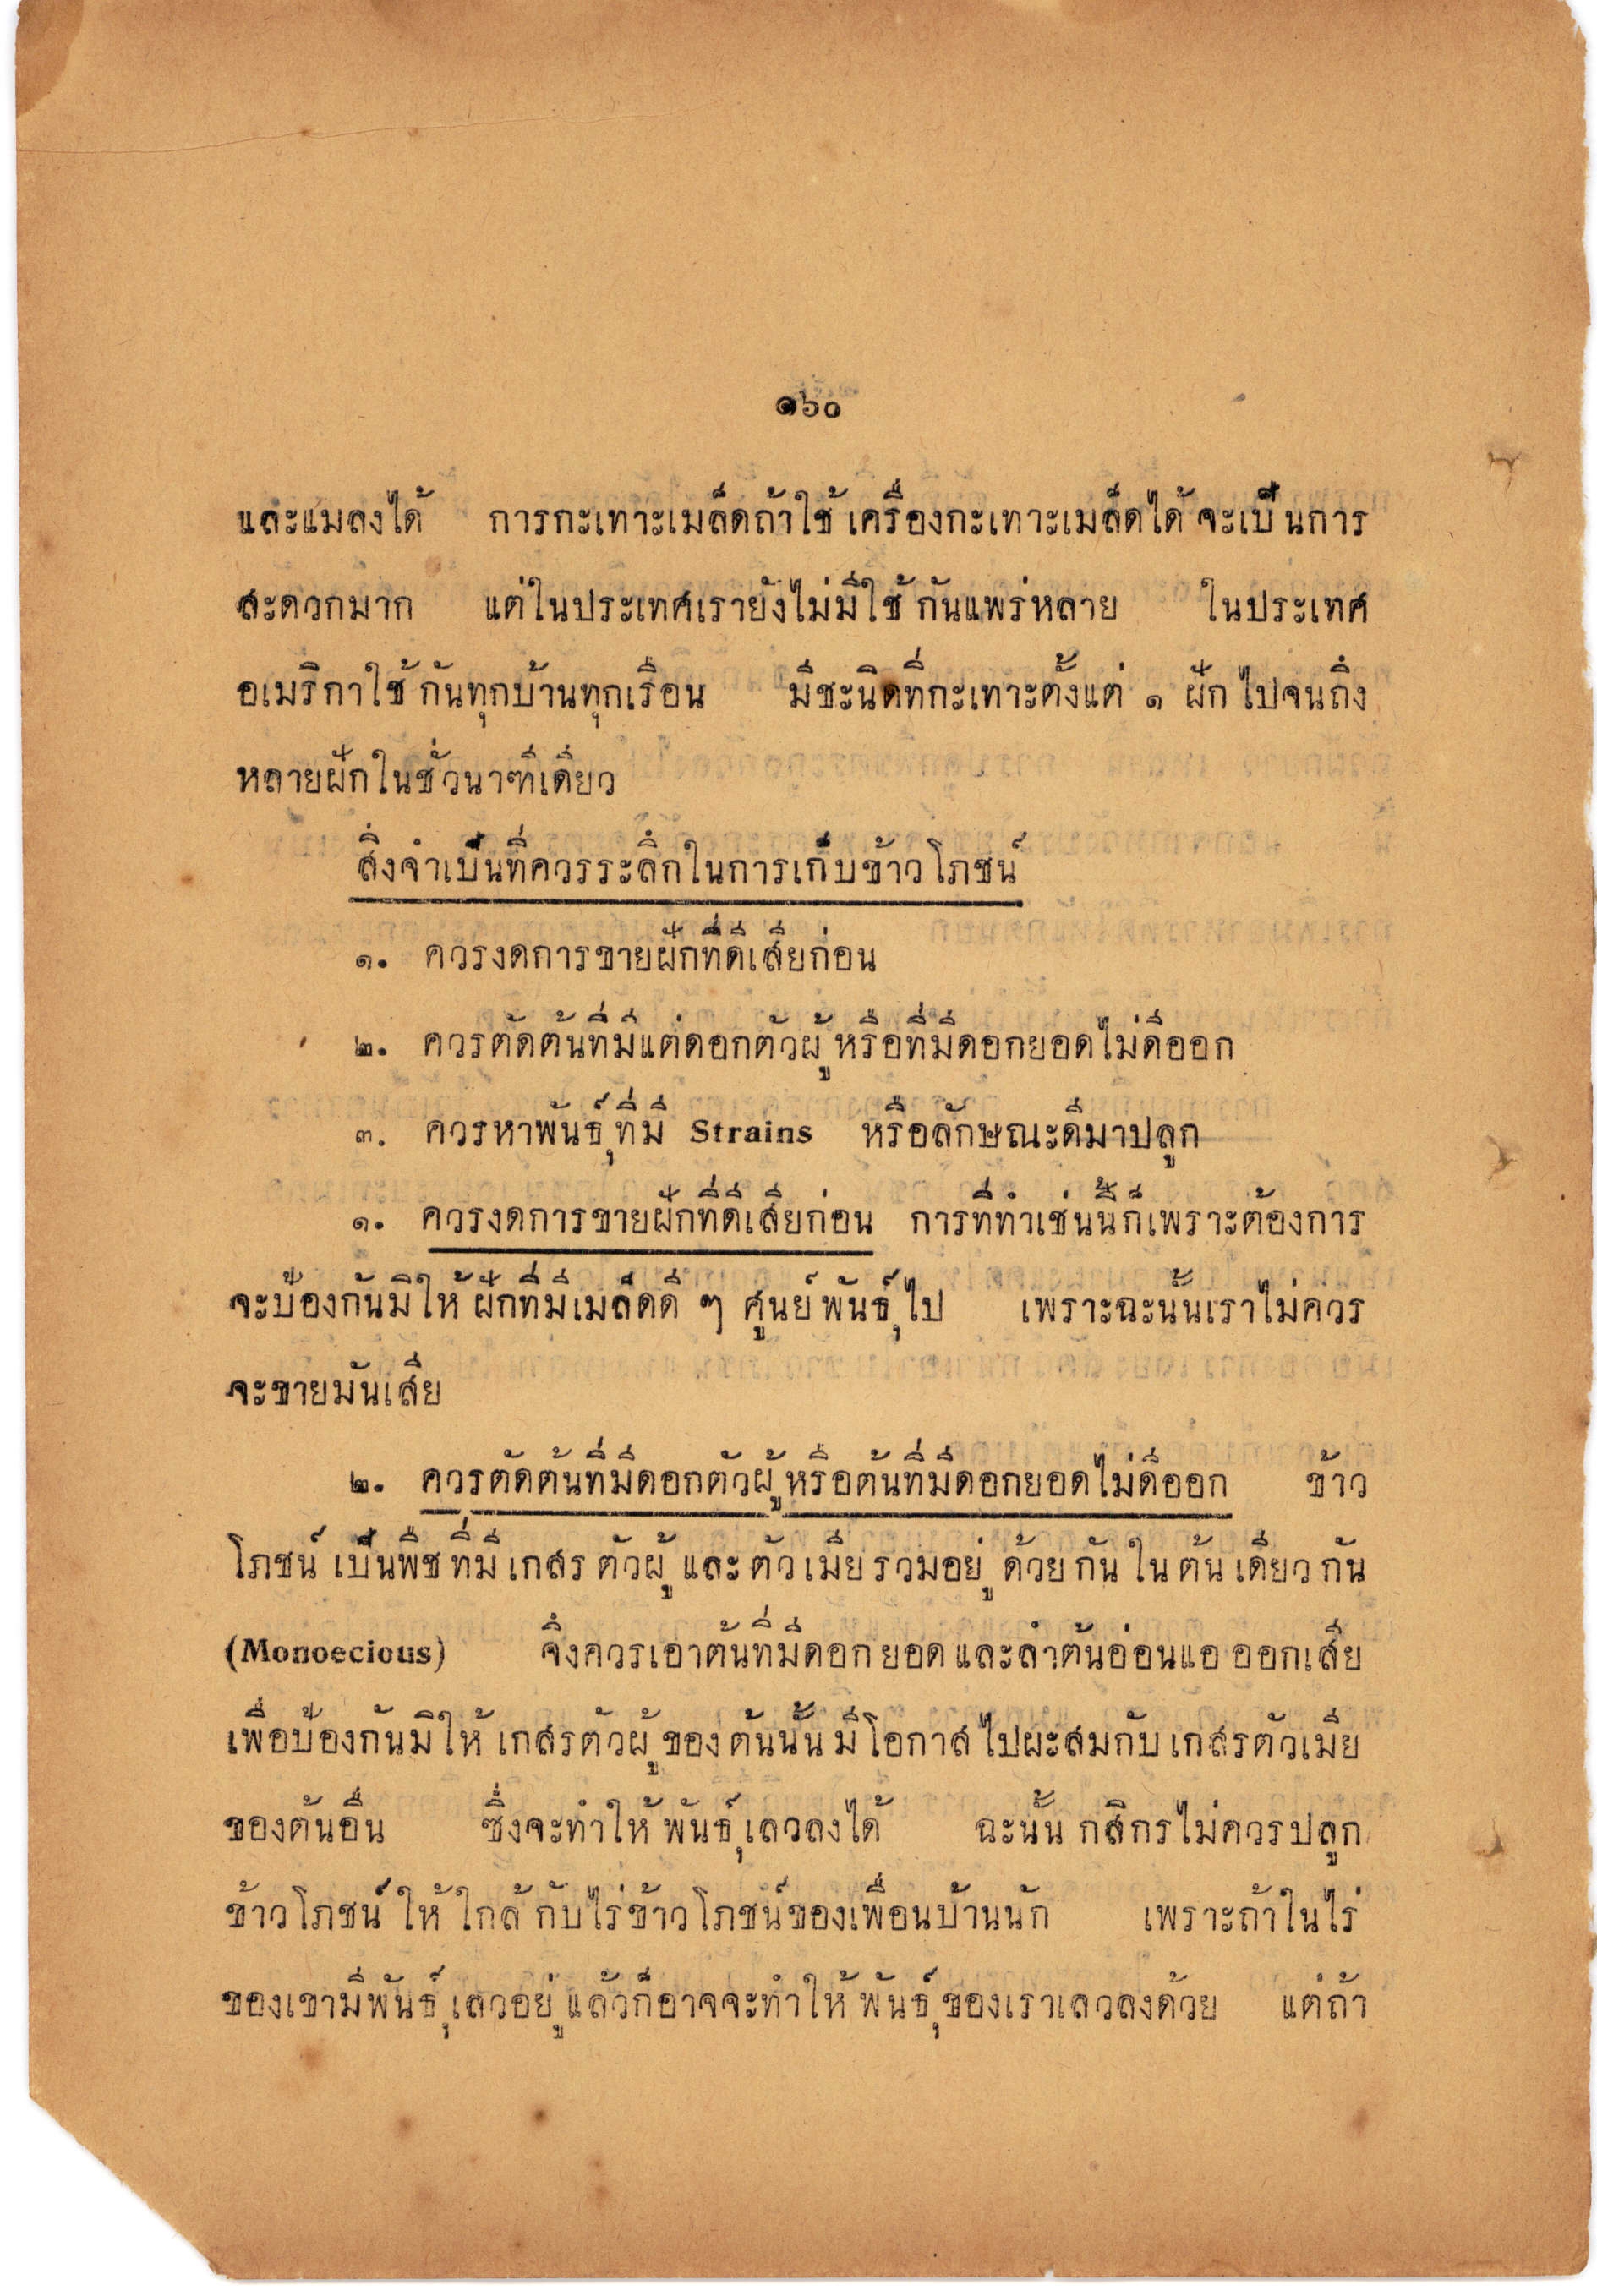 ๑๖๐
และแมลงได้ การกะเทาะเมล็ดถ้าใช้ เครื่องกะเทาะเมล็ดได้ จะเป็นการ
สะดวกมาก แต่ในประเทศเรายังไม่มีใช้ กันแพร่หลาย ในประเทศ
อเมริกาใช้ กันทุกบ้านทุกเรือน มีชะนิดที่กะเทาะตั้งแต่ ๑ ฝัก ไปจนถึง
หลายฝักในชั่วนาฑีเดียว
สิ่งจำเป็นที่ควรระลึกในการเก็บข้าวโภชน์
๑. ควรงดการขายฝักที่ดีเสียก่อน
๒. ควรตัดต้นที่มีแต่ดอกตัวผู้ หรือที่มีดอกยอดไม่ดีออก
๓. ควรหาพันธุ์ที่มี Strains หรือลักษณะดีมาปลูก
๑. ควรงดการขายฝักที่ดีเสียก่อน การที่ทำเช่นนี้ก็เพราะต้องการ
จะป้องกันมิให้ ฝักที่มีเมล็ดดี ๆ ศูนย์ พันธุ์ไป เพราะฉะนั้นเราไม่ควร
จะขายมันเสีย
๒. ควรตัดต้นที่มีดอกตัวผู้ หรือต้นที่มีดอกยอดไม่ดีออก ข้าว
โภชน์ เป็นพืช ที่มี เกสร ตัวผู้ และ ตัว เมีย รวมอยู่ ด้วย กัน ใน ต้น เดียว กัน
(Monoecious) จึงควรเอาต้นที่มีดอก ยอด และลำต้นอ่อนแอ ออกเสีย
เพื่อป้องกันมิให้ เกสรตัวผู้ ของ ต้นนั้น มีโอกาส ไปผะสมกับ เกสรตัวเมีย
ของต้นอื่น ซึ่งจะทำให้ พันธุ์เลวลงได้ ฉะนั้น กสิกรไม่ควรปลูก
ข้าวโภชน์ ให้ ใกล้ กับไร่ข้าวโภชน์ของเพื่อนบ้านนัก เพราะถ้าในไร่
ของเขามีพันธุ์เลวอยู่ แล้วก็อาจจะทำให้ พันธุ์ของเราเลวลงด้วย แต่ถ้า